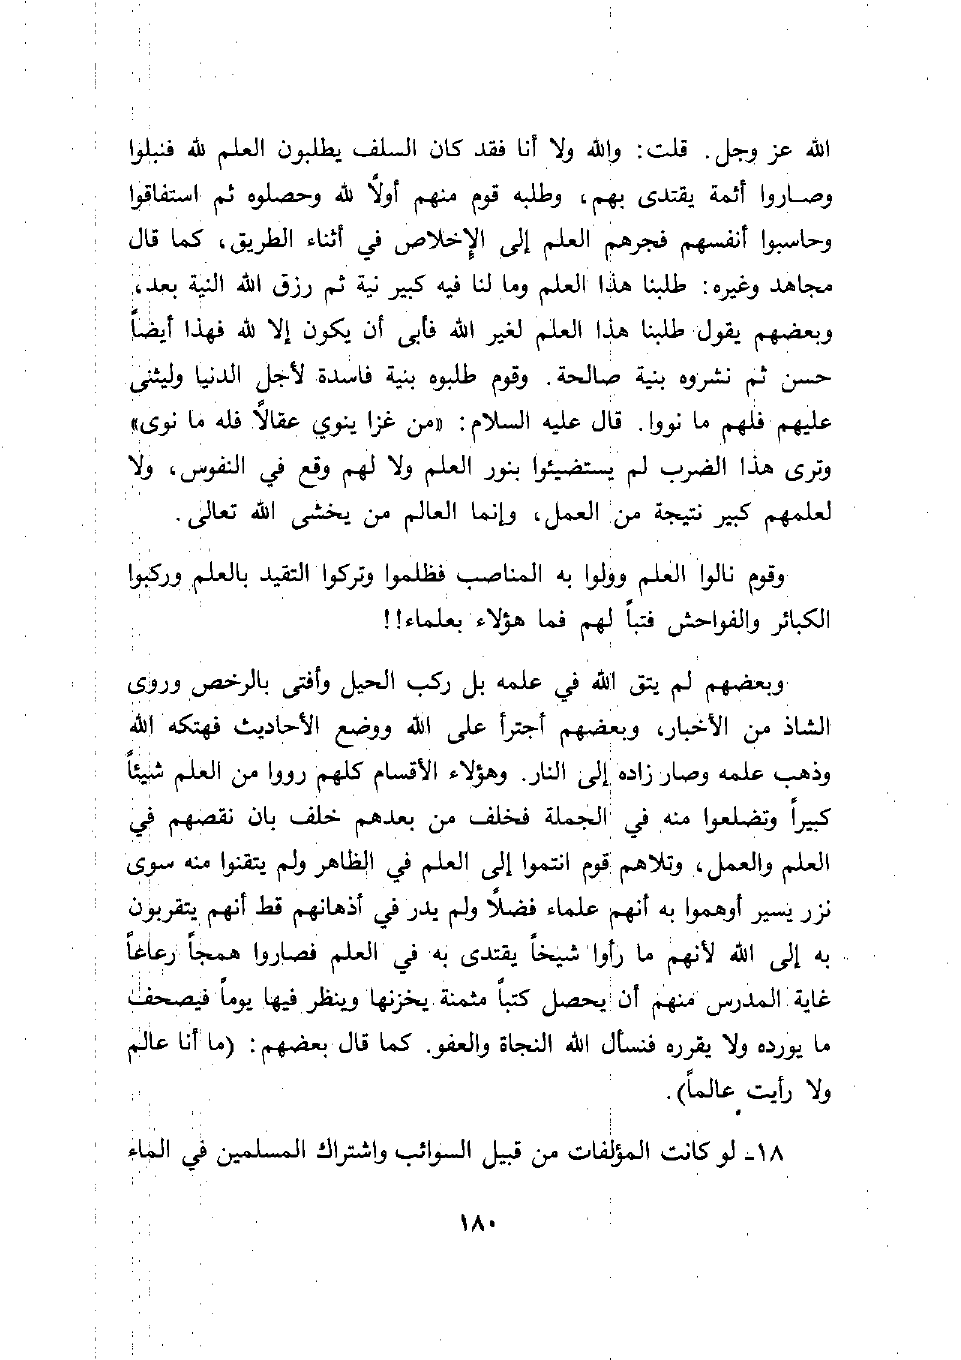 الله عز وجل. قلت: والله ولا أنا فقد كان السلف يطلبون العلم لله فنبلوا
وصاروا أئمة يقتدى بهم، وطلبه قوم منهم أولاً لله وحصلوه ثم استفاقوا
وحاسبوا أنفسهم فجرهم العلم إلى الإخلاص في أثناء الطريق، كما قال
مجاهد وغيره: طلبنا هذا العلم وما لنا فيه كبير نية ثم رزق الله النية بعد،
وبعضهم يقول طلبنا هذا العلم لغير الله فأبى أن يكون إلا لله فهذا أيضاً
حسن ثم نشروه بنية صالحة. وقوم طلبوه بنية فاسدة لأجل الدنيا وليثنى
عليهم فلهم ما نووا. قال عليه السلام: «من غزا ينوي عقالاً فله ما نوى»
وترى هذا الضرب لم يستضيئوا بنور العلم ولا لهم وقع في النفوس، ولا
لعلمهم كبير نتيجة من العمل، وإنما العالم من يخشى الله تعالى.
وقوم نالوا العلم وولوا به المناصب فظلموا وتركوا التقيد بالعلم وركبوا
الكبائر والفواحش فتباً لهم فما هؤلاء بعلماء!!
وبعضهم لم يتق الله في علمه بل ركب الحيل وأفتى بالرخص وروى
الشاذ من الأخبار، وبعضهم أجترأ على الله ووضع الأحاديث فهتكه الله
وذهب علمه وصار زاده إلى النار. وهؤلاء الأقسام كلهم رووا من العلم شيئاً
كبيراً وتضلعوا منه في الجملة فخلف من بعدهم خلف بان نقصهم في
العلم والعمل، وتلاهم قوم انتموا إلى العلم في الظاهر ولم يتقنوا منه سوى
نزر يسير أوهموا به أنهم علماء فضلاً ولم يدر في أذهانهم قط أنهم يتقربون
به إلى الله لأنهم ما رأوا شيخاً يقتدى به في العلم فصاروا همجاً رعاعاً
غاية المدرس منهم أن يحصل كتباً مثمنة يخزنها وينظر فيها يوماً فيصحف
ما يورده ولا يقرره فنسأل الله النجاة والعفو. كما قال بعضهم: (ما أنا عالم
ولا رأيت عالماً).
١٨ـ لو كانت المؤلفات من قبيل السوائب واشتراك المسلمين في الماء
١٨٠